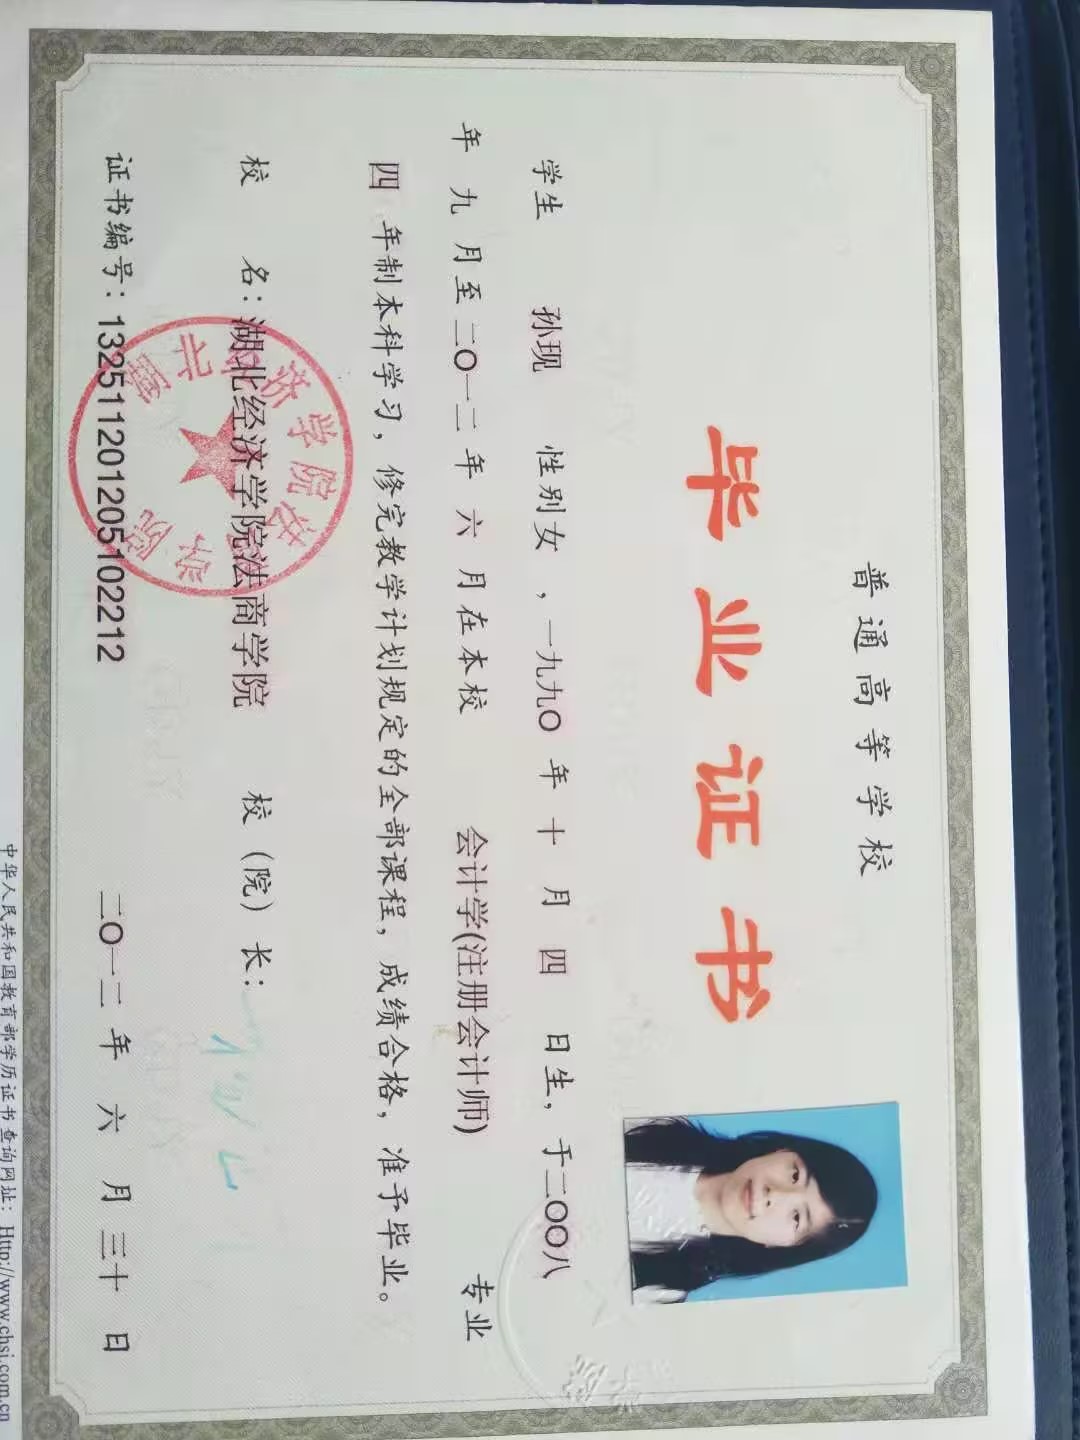 普通高等学校
毕业证书
学生 孙现 性别女，一九九〇年十月四日生，于二〇〇八
年九月至二〇一二年六月在本校 会计学(注册会计师) 专业
四年制本科学习，修完教学计划规定的全部课程，成绩合格，准予毕业。
校 名：湖北经济学院法商学院 校（院）长：
证书编号：132511201205102212 二〇一二年六月三十日
中华人民共和国教育部学历证书查询网址：Http://www.chsi.com.cn
湖北经济学院法商学院